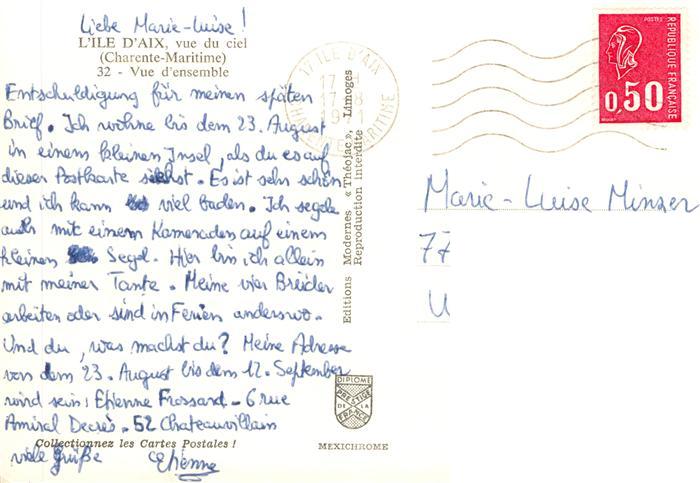 Liebe Marie-Luise!
L'ILE D'AIX, vue du ciel
(Charente-Maritime)
32 - Vue d'ensemble
Entschuldigung für meinen späten
Brief. Ich wohne bis dem 23. August
in einem kleinen Insel, als du es auf
dieser Postkarte siehst. Es ist sehr schön
und ich kann viel baden. Ich segele
auch mit einem Kameraden auf einem
kleinen Segel. Hier bin ich allein
mit meiner Tante. Meine vier Brüder
arbeiten oder sind in Ferien anderswo.
Und du, was machst du? Meine Adresse
von dem 23. August bis dem 12. September
wird sein: Etienne Frossard - 6 rue
Amiral Decrès - 52 Chateauvillain
Collectionnez les Cartes Postales !
viele Grüße Etienne
Editions Modernes « Théojac », Limoges
Reproduction Interdite
17 ILE D'AIX
CHARENTE MARITIME
DIPLOME
PRESTIGE
DE LA
FRANCE
MEXICHROME
POSTES
REPUBLIQUE FRANÇAISE
0,50
Marie-Luise Minzer
77
U